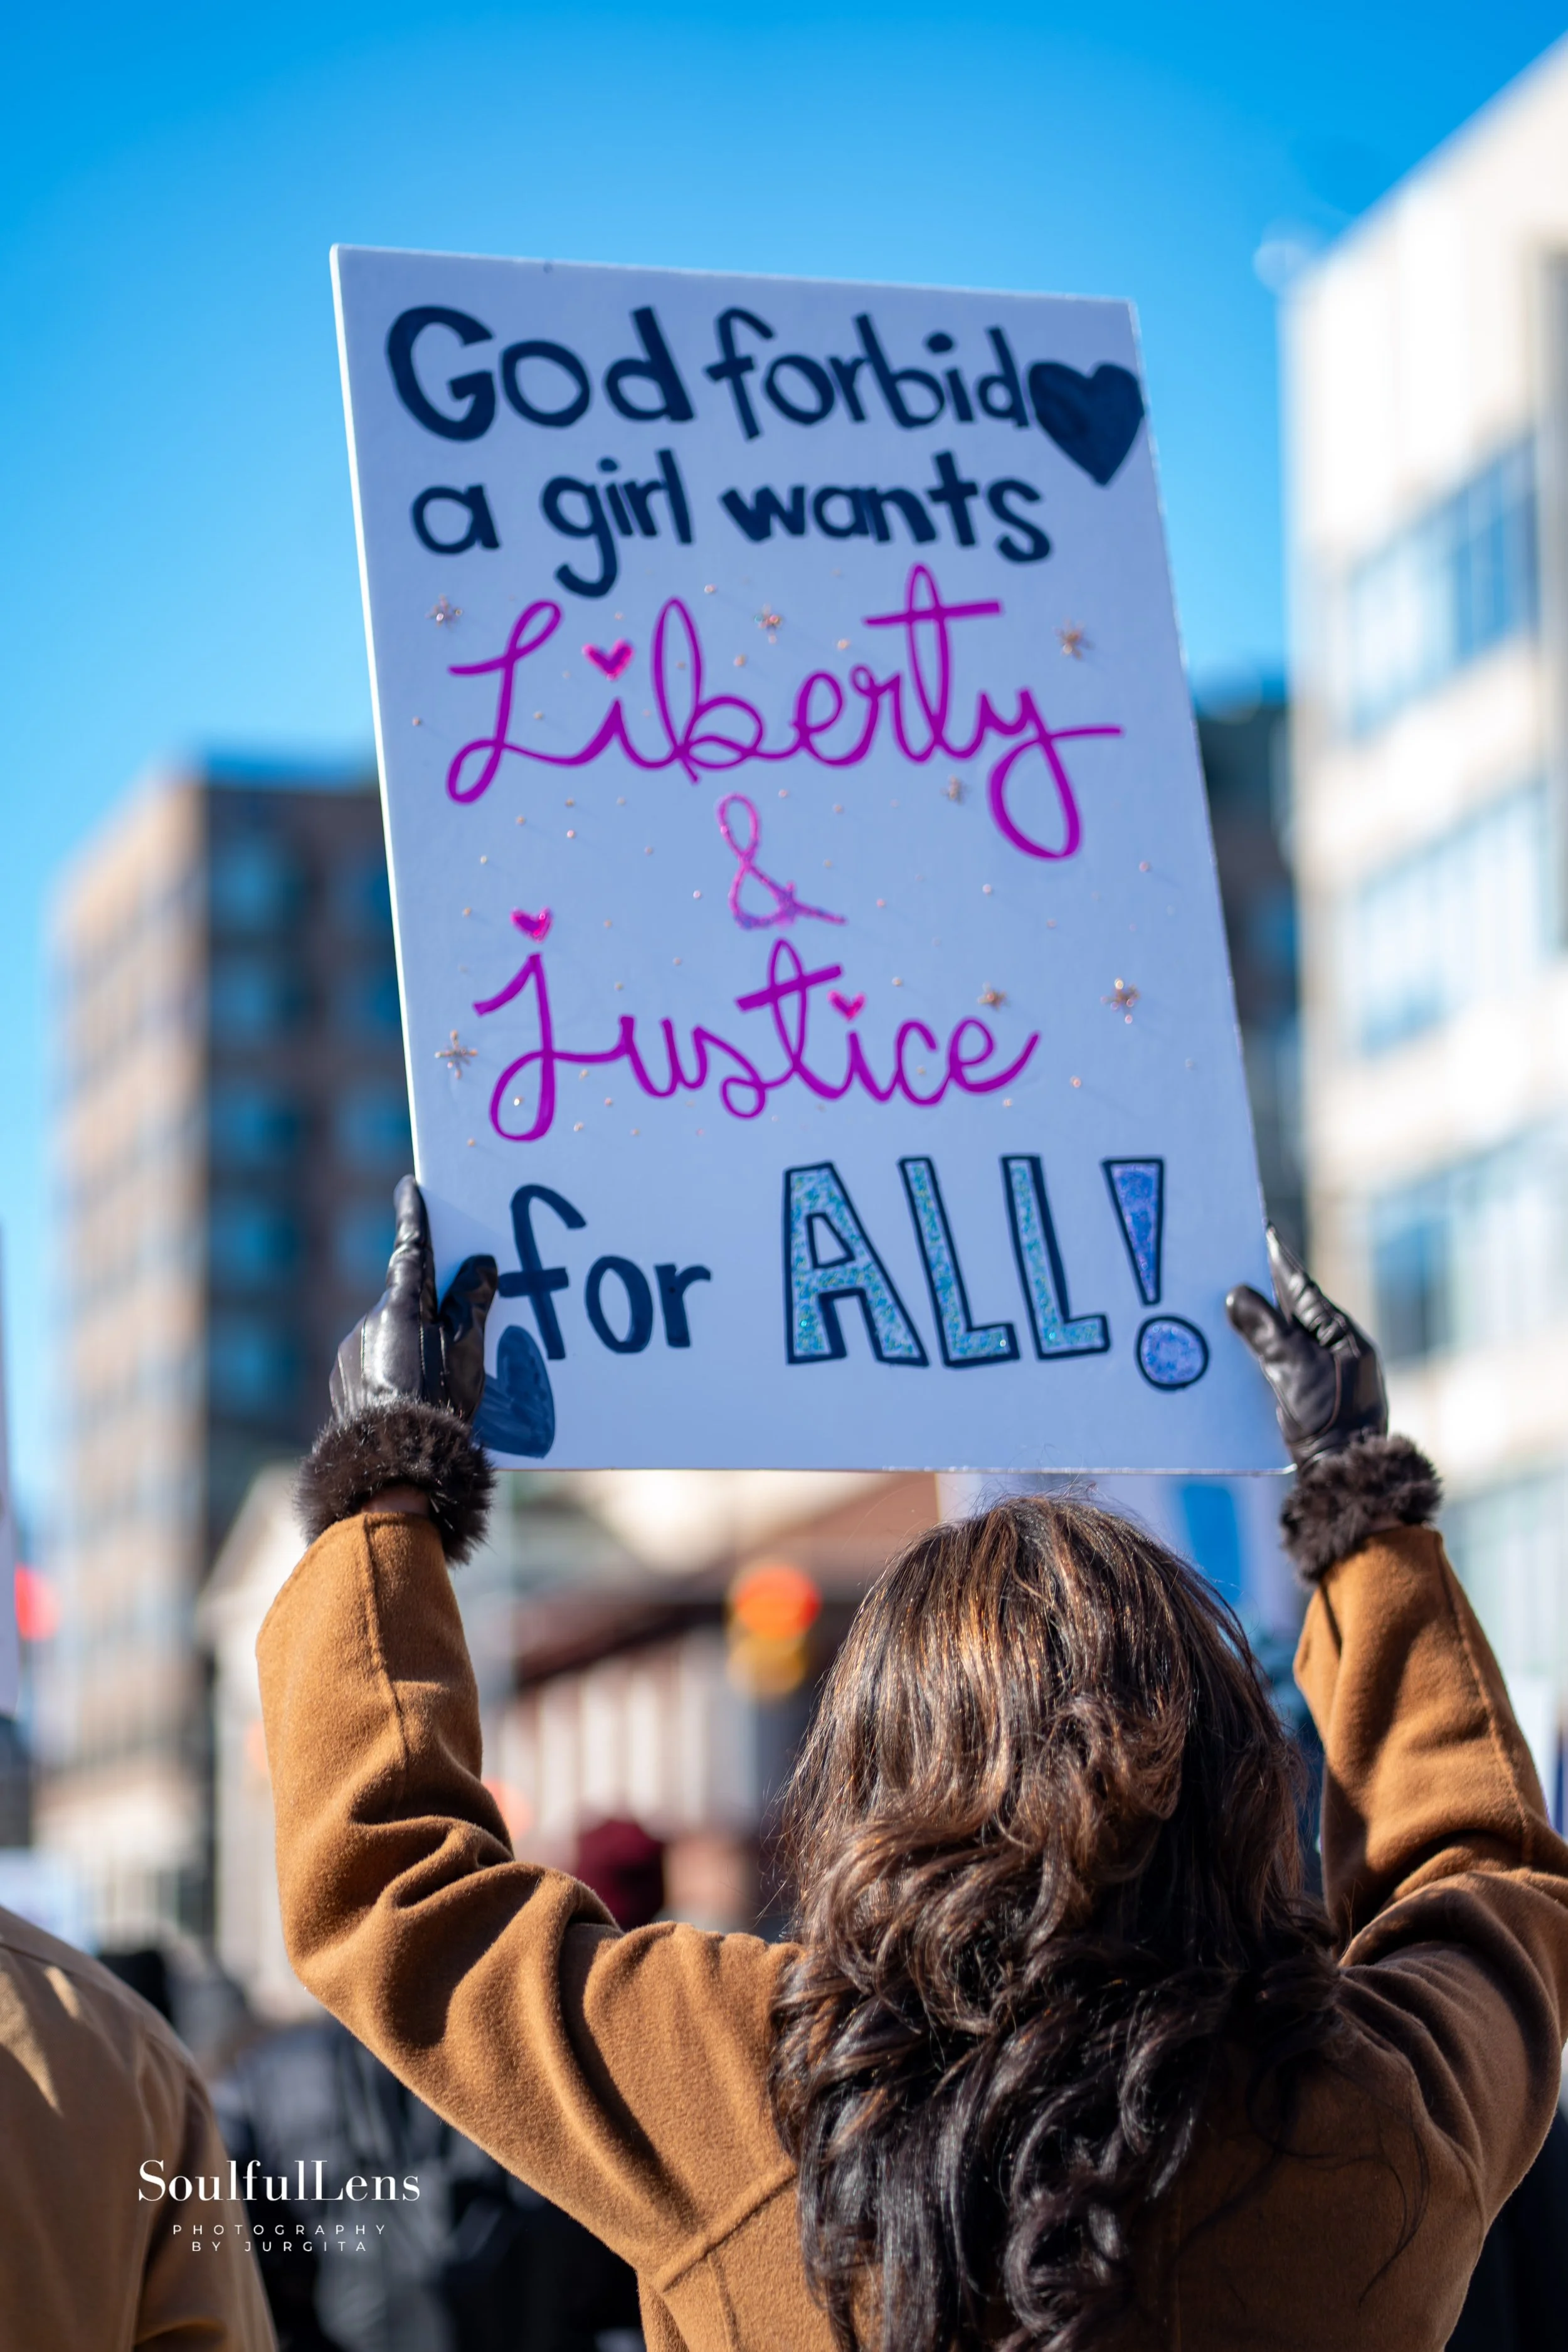 God forbid
a girl wants
Liberty
&
Justice
for ALL!
SoulfulLens
PHOTOGRAPHY
BY JURGITA